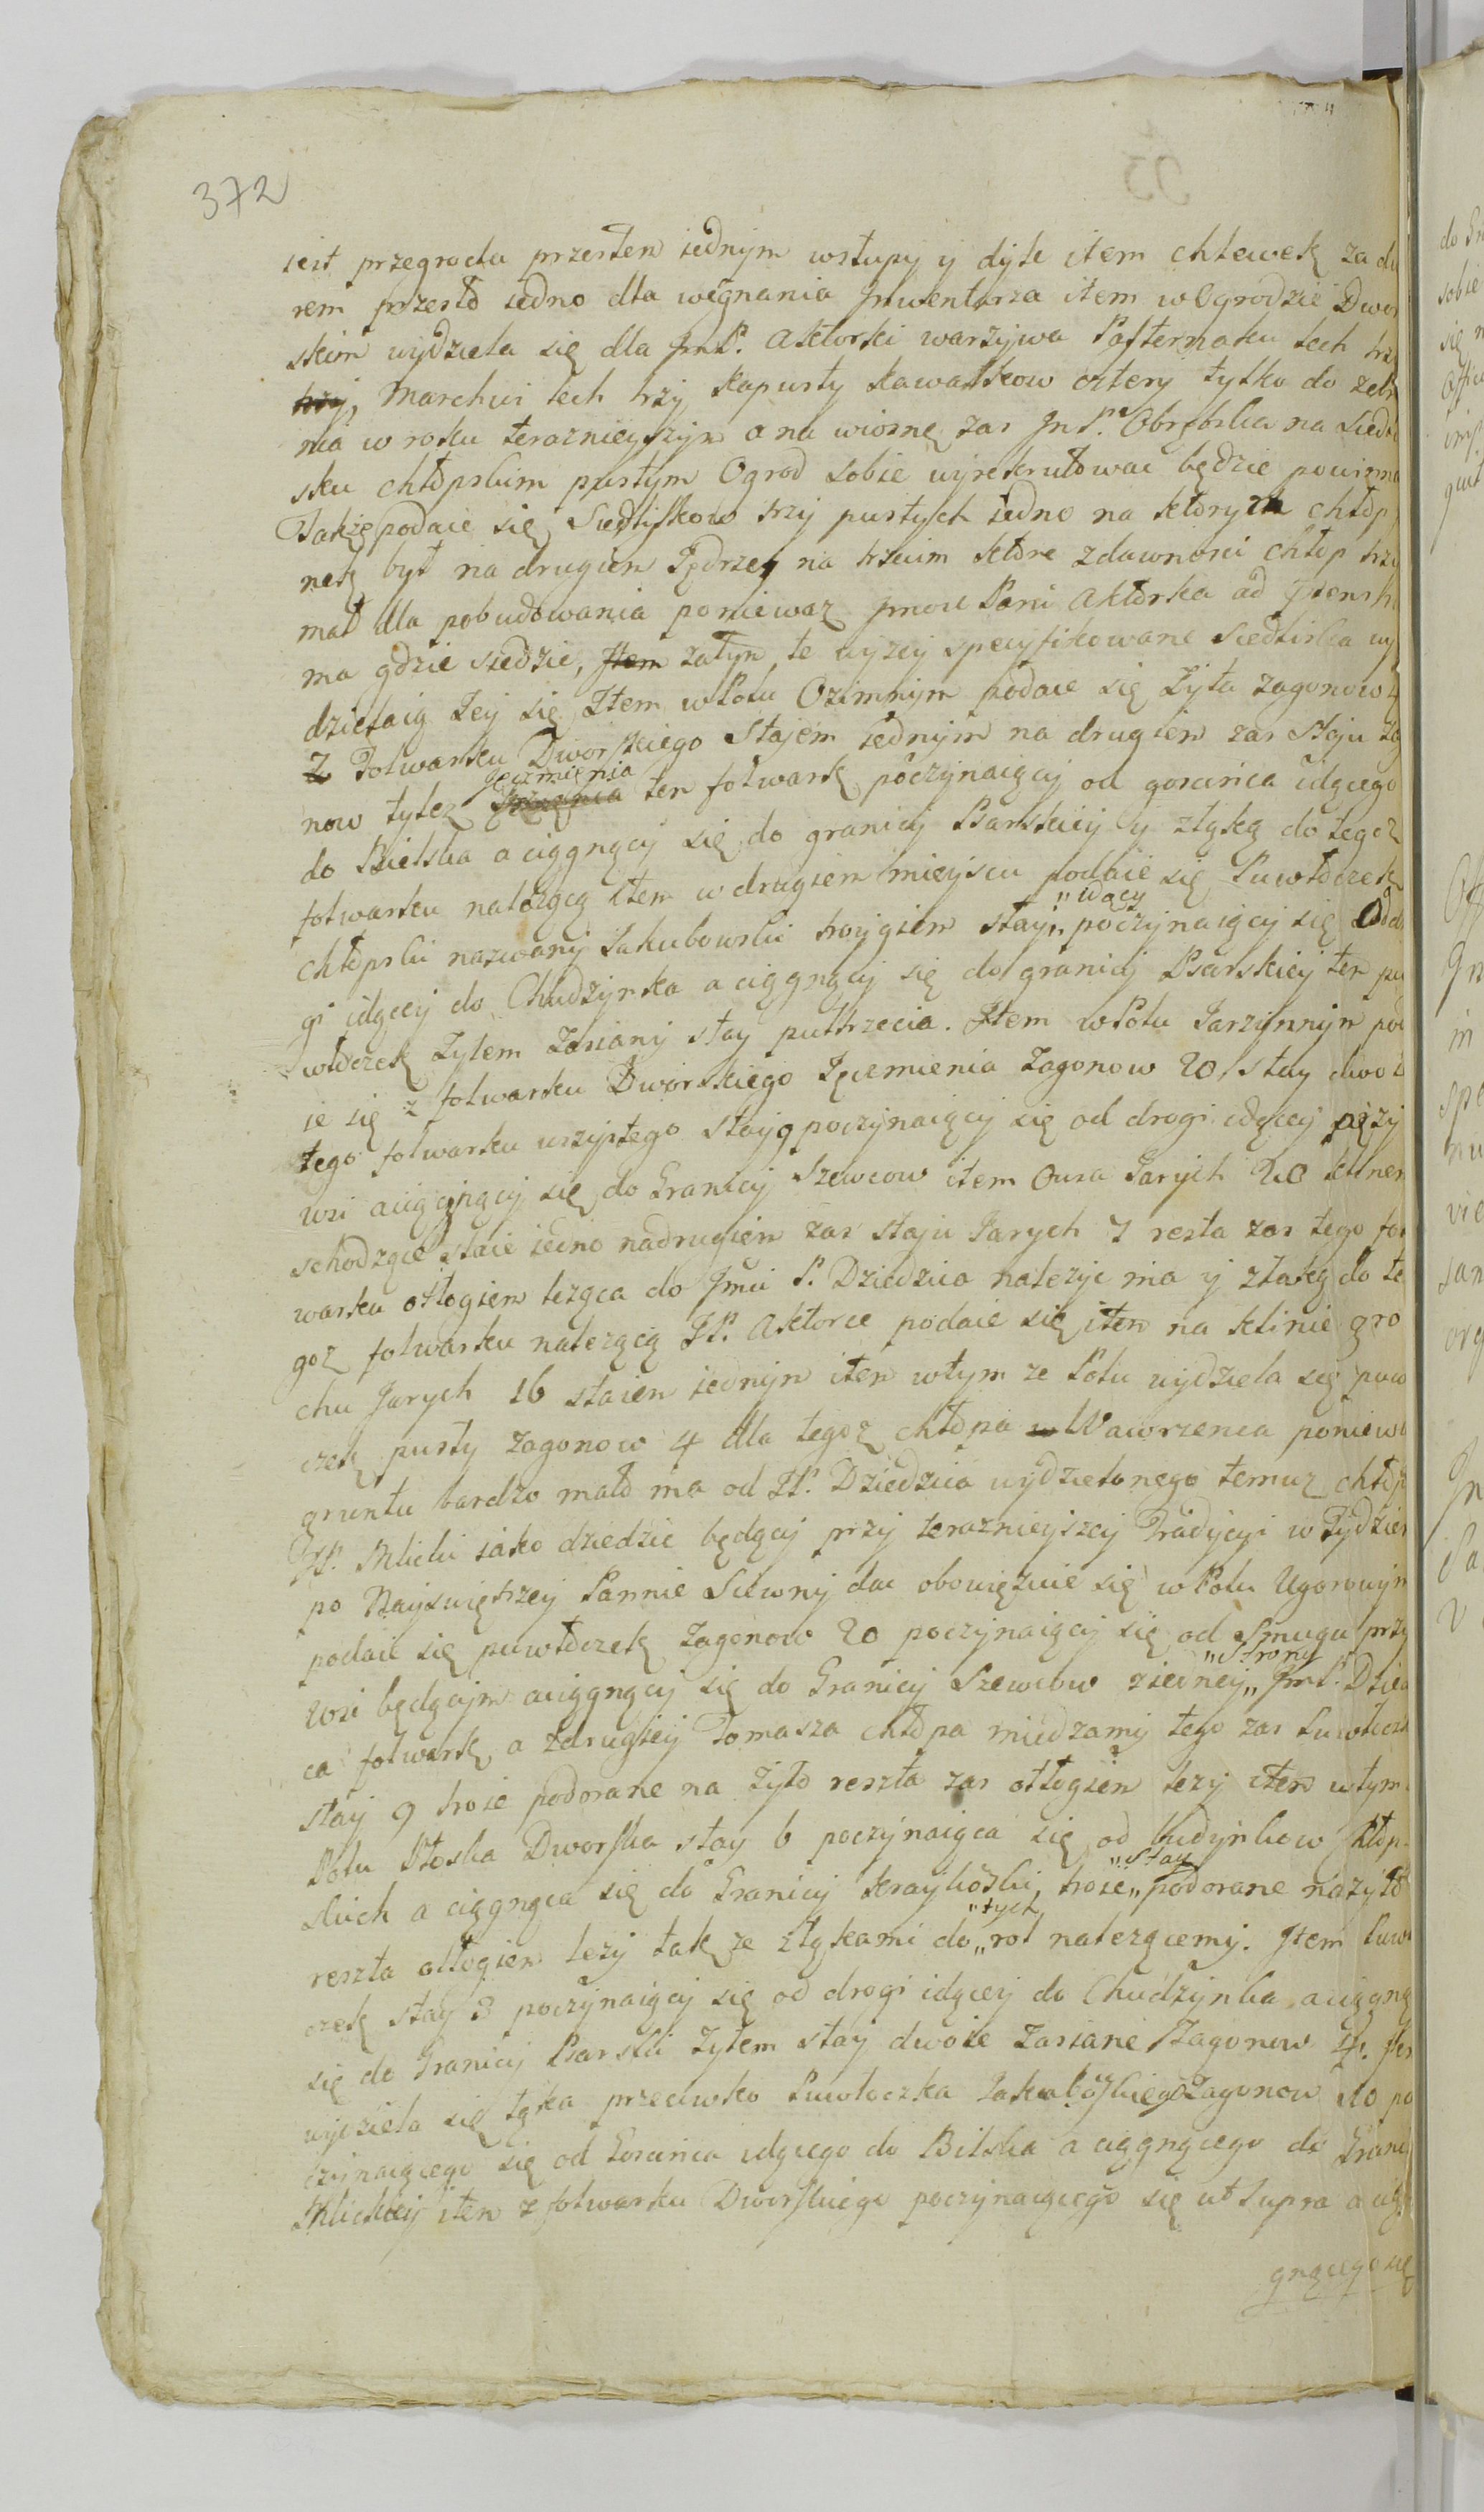 372
iest przegroda przesłem iednym wstupy y dyle item chlewek za du
rem przesło iedno dla wegnania Jnwentarza item w Ogrodzie Dwor
skim wydziela się dla JmP. Aktorki warzywa Pasternaku lech trzy
Marchwi lech trzy kapusty kawałkow cztery tylko do zebra
nia w roku teraznieyszym a na wiosnę zas JmP. Obrębska na siedli
sku chłopskim pustym Ogrod sobie wyrekrutować będzie powinna
Także podaie się Siedliskow trzy pustych iedno na ktorym chłop
nek był na drugiem Jędrzey na trzecim ktore zdawności chłop trzy
mał dla pobudowania poniewaz Jmość Pani Aktorka ad
ma gdzie siedzie, zatym te wyzey specyfikowane siedliska wy
dzielaią Jey się Jtem w Polu Ozimnym podaie się Zyta zagonow
Z Folwarku Dworskiego stajem iednym na drugiem zas staju za
now tylez Jęczmienia ten folwark poczynaiący od goscińca idącego
do Bielska a ciągnący się do granicy Psarskiey y złąką do tegoz
folwarku nalezącą item w drugiem mieyscu podaie się Puwłoczek
chłopski nazwany Jakubowski troygiem stay idący poczynaiący się od dro
gi idącey do Chudzynka a ciągnący się do granicy Psarskiey ten pu
włoczek Zytem Zasiany stay pułtrzecia. Jtem w Polu Jarzynnym poda
ie się z folwarku Dworskiego Jęczmienia Zagonow 20 stay dwoie
tego folwarku wszystego stay 9 poczynaiący się od drogi idącey przy
wsi aciągnący się do Granicy Szewcow item Owsa Jarych 20
schodzące staie iedno nadrugiem zas staju Jarych 7 reszta zas tego fol
warku ołłogiem leząca do Jmci P. Dziedzica nalezyc ma y złąką do te
goz folwarku nalezącą JP. Aktorce podaie się item na klinie gro
chu Jarych 16 staiem iednym item wtym ze Polu wydziela się puwło
czek pusty zagonow 4 dla tegoz chłopa Wawrzenca poniewaz
gruntu bardzo mało ma od JP. Dziedzica wydzielonego temuz chłopu
JP. Mlicki iako dziedzic będący przy teraznieyszey Tradycyi w Tydzien
po Nayswiętrzey Pannie Siewny dac obowięzuie się w Polu Ugorowym
podaie się puwłoczek Zagonow 20 poczynaiący się od Smugu przy
Wsi będącym aciągnący się do Granicy Szewcow ziedney Strony JmP. Dziedzi
ca folwark, a zdrugiey Tomasza chłopa miedzamy tego zas Puwłoczka
stay 9 troie podorane na Zyto reszta zas ołłogiem lezy item wtym
Polu Płoska Dworska stay 6 poczynaiąca się od budynkow chłop
skich a ciągnąca się do Granicy troie stay podorane nazyto
reszta ołłogiem lezy tak ze złąkami do tych rol nalezącemy. Jtem Puwło
czek stay 3 poczynaiący się od drogi idącey do Chudzynka aciągną
się do Granicy Psarski Zytem stay dwoie Zasiane Zagonow 4. Jtem
wydziela się łąka przeciwko Puwłoczka Jakubowskiego Zagonow 10 po
czynaiącego się od Goscińca idącego do Bilska a ciągnącego do Granicy
Mlickiey item z folwarku Dworskiego poczynaiącego się ut supra a cią
gnącego się